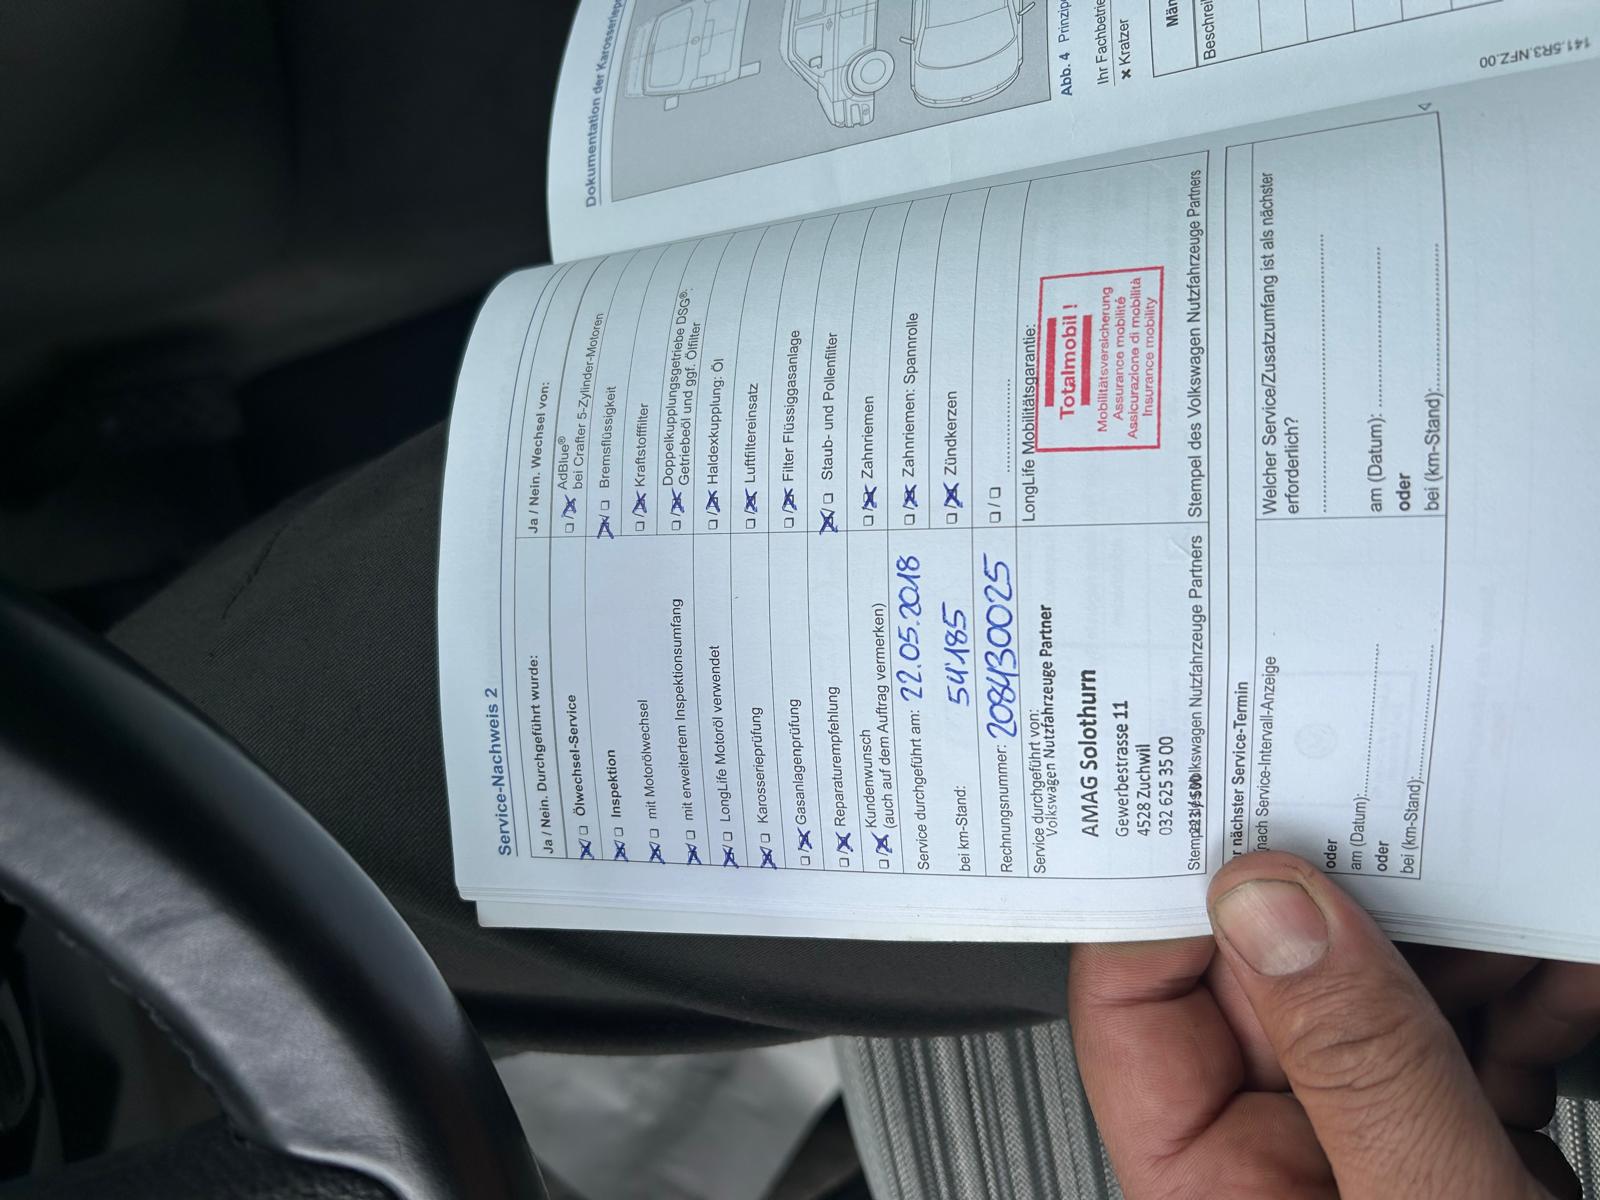 Service-Nachweis 2
Ja / Nein. Durchgeführt wurde:
☒/☐ Ölwechsel-Service
☒/☐ Inspektion
☒/☐ mit Motorölwechsel
☒/☐ mit erweitertem Inspektionsumfang
☒/☐ LongLife Motoröl verwendet
☒/☐ Karosserieprüfung
☐/☒ Gasanlagenprüfung
☐/☒ Reparaturempfehlung
☐/☒ Kundenwunsch
(auch auf dem Auftrag vermerken)
Service durchgeführt am: 22.05.2018
bei km-Stand: 54'185
Rechnungsnummer: 2084130025
Service durchgeführt von:
Volkswagen Nutzfahrzeuge Partner
AMAG Solothurn
Gewerbestrasse 11
4528 Zuchwil
032 625 35 00
Volkswagen Nutzfahrzeuge Partners
Ja / Nein. Wechsel von:
☐/☒ AdBlue®
bei Crafter 5-Zylinder-Motoren
☒/☐ Bremsflüssigkeit
☐/☒ Kraftstofffilter
☐/☒ Doppelkupplungsgetriebe DSG®:
Getriebeöl und ggf. Ölfilter
☐/☒ Haldexkupplung: Öl
☐/☒ Luftfiltereinsatz
☐/☒ Filter Flüssiggasanlage
☒/☐ Staub- und Pollenfilter
☐/☒ Zahnriemen
☐/☒ Zahnriemen: Spannrolle
☐/☒ Zündkerzen
☐/☐ ....................
LongLife Mobilitätsgarantie:
Totalmobil !
Mobilitätsversicherung
Assurance mobilité
Assicurazione di mobilità
Insurance mobility
Stempel des Volkswagen Nutzfahrzeuge Partners
r nächster Service-Termin
nach Service-Intervall-Anzeige
oder
am (Datum):....................
oder
bei (km-Stand):....................
Welcher Service/Zusatzumfang ist als nächster
erforderlich?
....................
am (Datum): ....................
oder
bei (km-Stand):....................
Dokumentation der
Abb. 4
Ihr
× Kratzer
141.5R3.NFZ.00